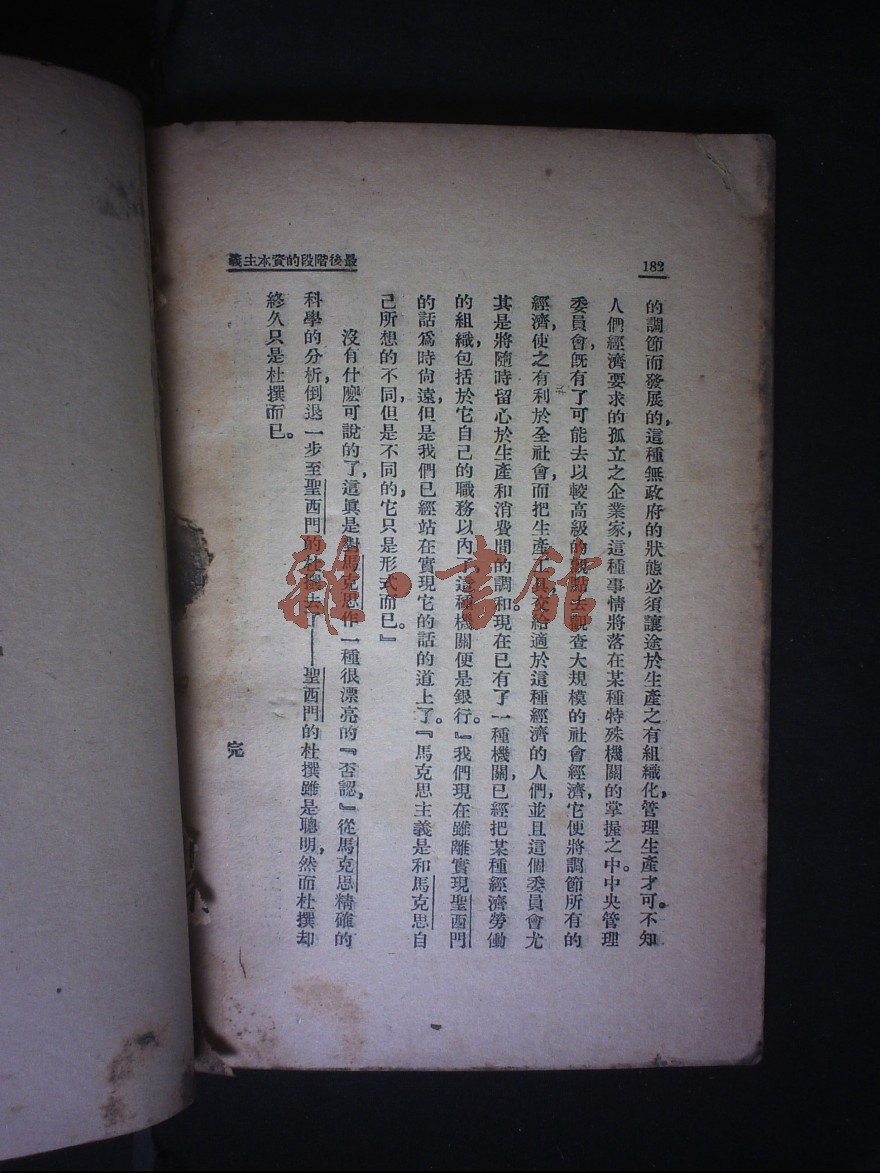 182
最後階段的資本主義
的調節而發展的，這種無政府的狀態必須讓途於生產之有組織化，管理生產才可。不知
人們經濟要求的孤立之企業家，這種事情將落在某種特殊機關的掌握之中。中央管理
委員會，既有了可能去以較高級的觀點去觀查大規模的社會經濟，它便將調節所有的
經濟，使之有利於全社會，而把生產工具，交給適於這種經濟的人們，並且這個委員會尤
其是將隨時留心於生產和消費間的調和。現在已有了一種機關，已經把某種經濟勞働
的組織，包括於它自己的職務以內了，這種機關便是銀行。』我們現在雖離實現聖西門
的話爲時尙遠，但是我們已經站在實現它的話的道上了。『馬克思主義是和馬克思自
己所想的不同，但是不同的，它只是形式而已。』
沒有什麼可說的了，這眞是對馬克思作一種很漂亮的『否認，』從馬克思精確的
科學的分析，倒退一步至聖西門的杜撰去了——聖西門的杜撰雖是聰明，然而杜撰却
終久只是杜撰而已。
完
雜·書館